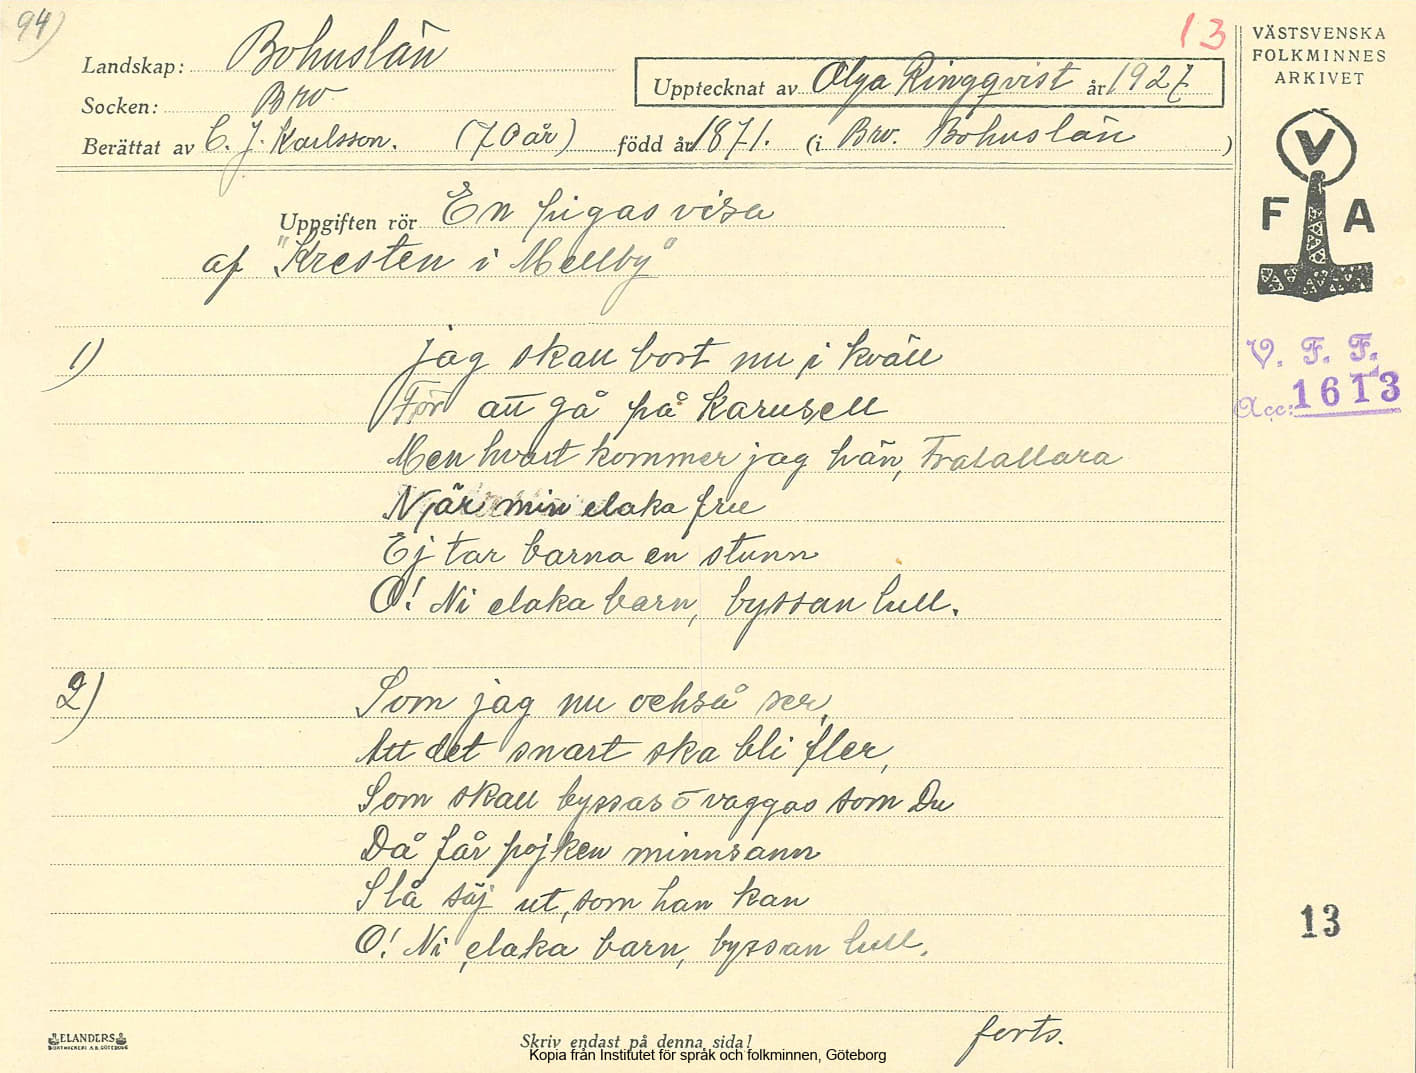 94)
13
Landskap: Bohuslän
Socken: Bro
Upptecknat av Olga Ringqvist år 1927
Berättat av C. J. Karlsson. (70 år) född år 1871. (i Bro. Bohuslän )
Uppgiften rör En pigas visa
af "Kresten i Mellby"
1) jag skall bort nu i kväll
För att gå på karusell
Men hvart kommer jag hän, Tralallara
När min elaka fru
Ej tar barna en stunn
O! Ni elaka barn, byssan lull.
2) Som jag nu också ser,
Att det snart ska bli fler,
Som skall byssas o vaggas som Du
Då får pojken minnsann
Slå säj ut, som han kan
O! Ni elaka barn, byssan lull.
forts.
ELANDERS
BOKTRYCKERI A.B. GÖTEBORG
Skriv endast på denna sida!
Kopia från Institutet för språk och folkminnen, Göteborg
VÄSTSVENSKA
FOLKMINNES
ARKIVET
V
F A
V. F. F.
Acc: 1613
13